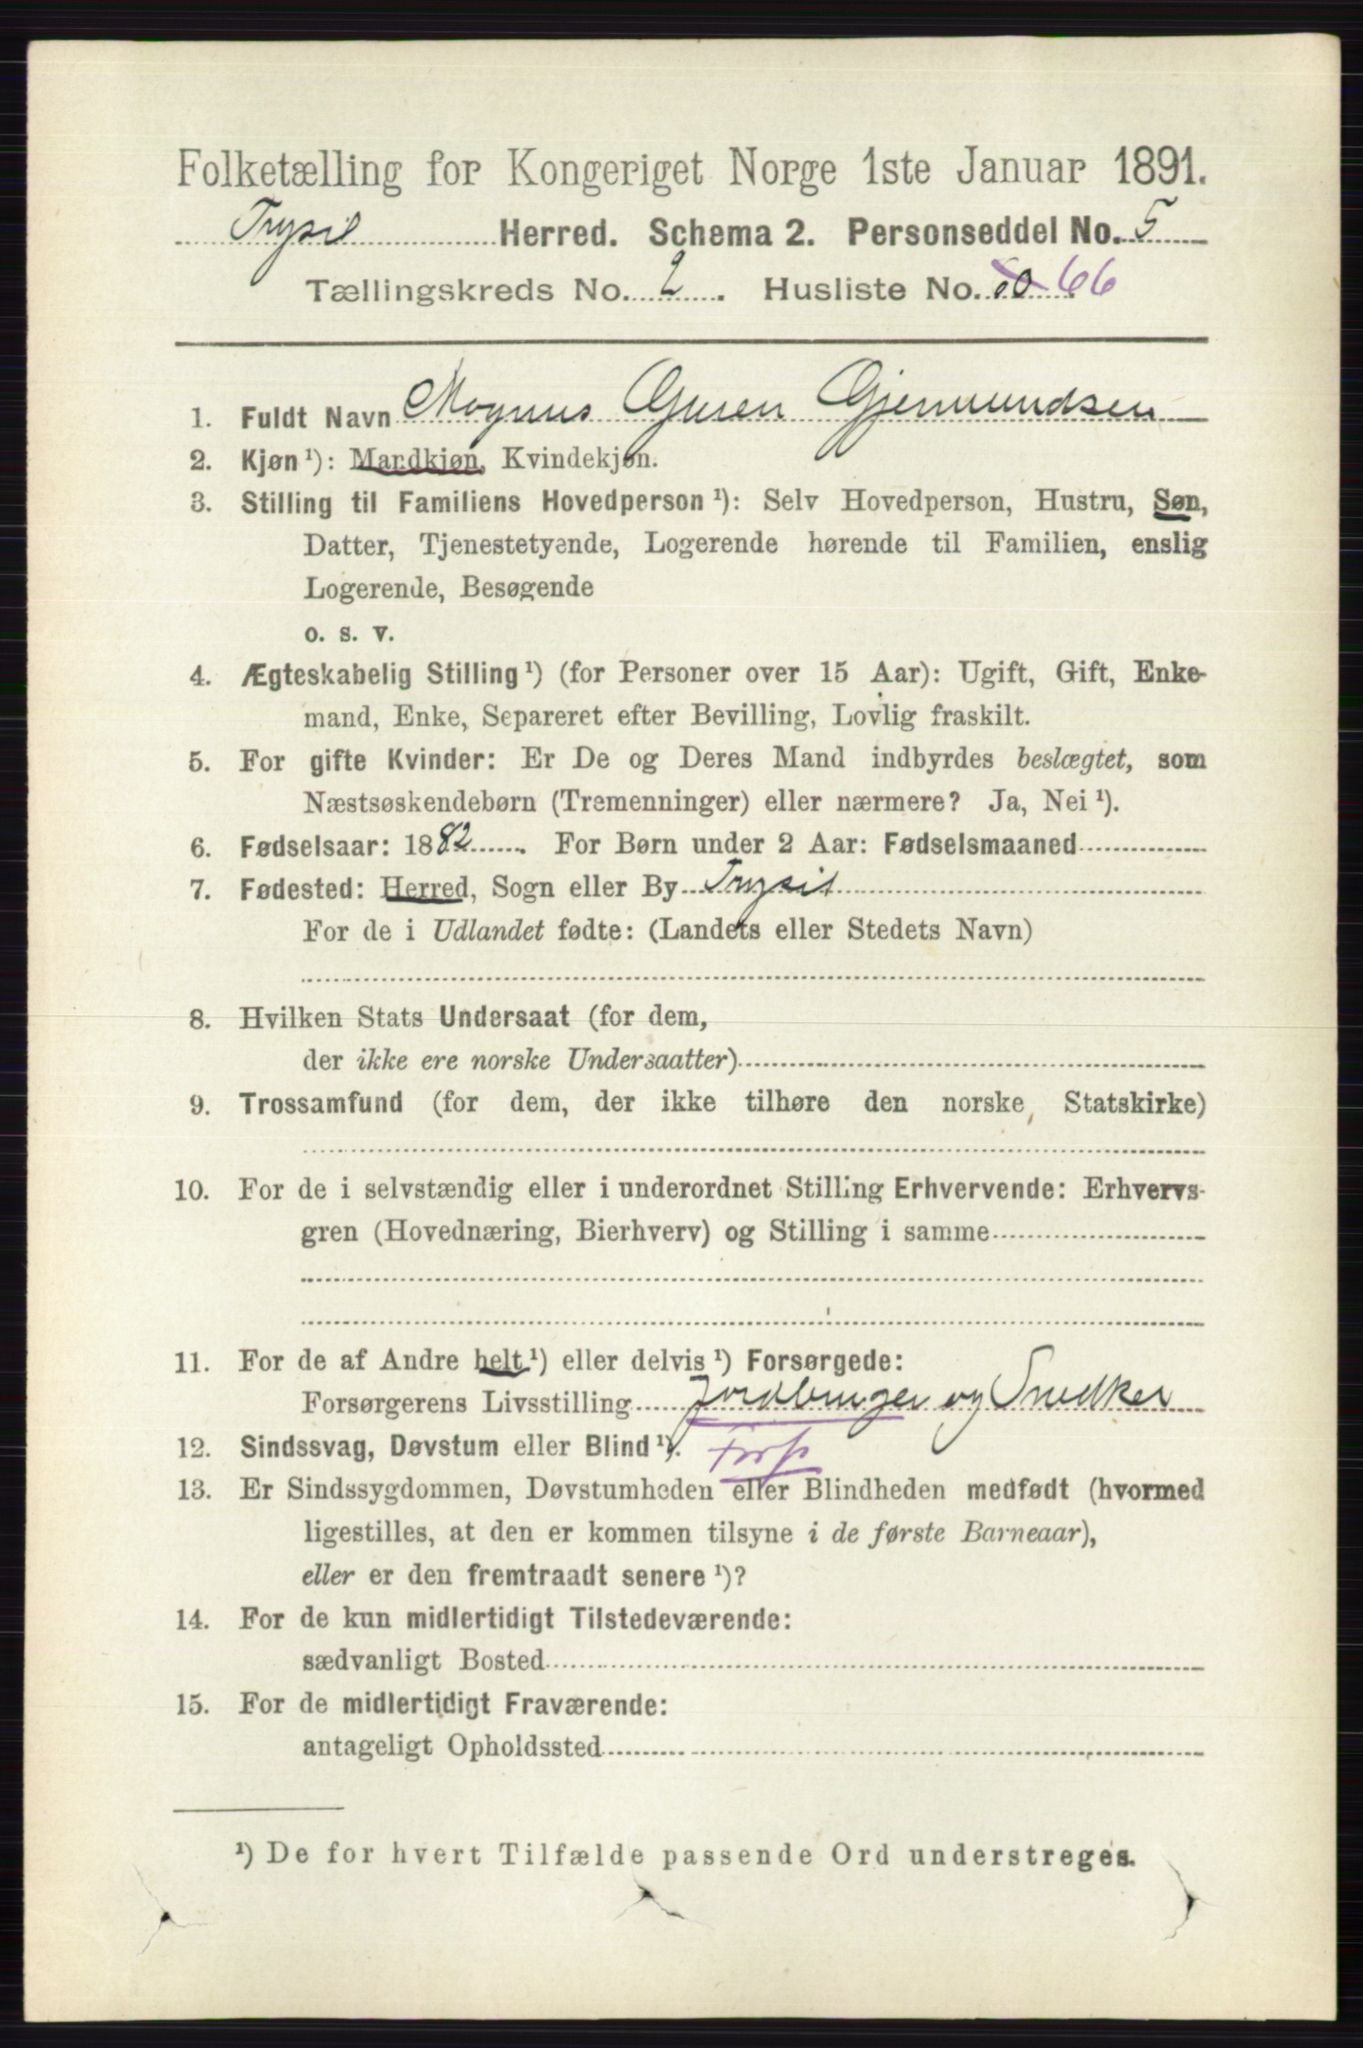 Folketælling for Kongeriget Norge 1ste Januar 1891.
Trysil Herred. Schema 2. Personseddel No. 5
Tællingskreds No. 2. Husliste No. 66
1. Fuldt Navn Magnus Gjermundsen
2. Kjøn ¹): Mandkjøn, Kvindekjøn.
3. Stilling til Familiens Hovedperson ¹): Selv Hovedperson, Hustru, Søn,
Datter, Tjenestetyende, Logerende hørende til Familien, enslig
Logerende, Besøgende
o. s. v.
4. Ægteskabelig Stilling ¹) (for Personer over 15 Aar): Ugift, Gift, Enke-
mand, Enke, Separeret efter Bevilling, Lovlig fraskilt.
5. For gifte Kvinder: Er De og Deres Mand indbyrdes beslægtet, som
Næstsøskendebørn (Tremenninger) eller nærmere? Ja, Nei ¹).
6. Fødselsaar: 1882. For Børn under 2 Aar: Fødselsmaaned
7. Fødested: Herred, Sogn eller By Trysil
For de i Udlandet fødte: (Landets eller Stedets Navn)
8. Hvilken Stats Undersaat (for dem,
der ikke ere norske Undersaatter)
9. Trossamfund (for dem, der ikke tilhøre den norske Statskirke)
10. For de i selvstændig eller i underordnet Stilling Erhvervende: Erhvervs-
gren (Hovednæring, Bierhverv) og Stilling i samme
11. For de af Andre helt ¹) eller delvis ¹) Forsørgede:
Forsørgerens Livsstilling Jordbruger og Snedker
12. Sindssvag, Døvstum eller Blind ¹). Fors
13. Er Sindssygdommen, Døvstumheden eller Blindheden medfødt (hvormed
ligestilles, at den er kommen tilsyne i de første Barneaar),
eller er den fremtraadt senere ¹)?
14. For de kun midlertidigt Tilstedeværende:
sædvanligt Bosted
15. For de midlertidigt Fraværende:
antageligt Opholdssted
¹) De for hvert Tilfælde passende Ord understreges.